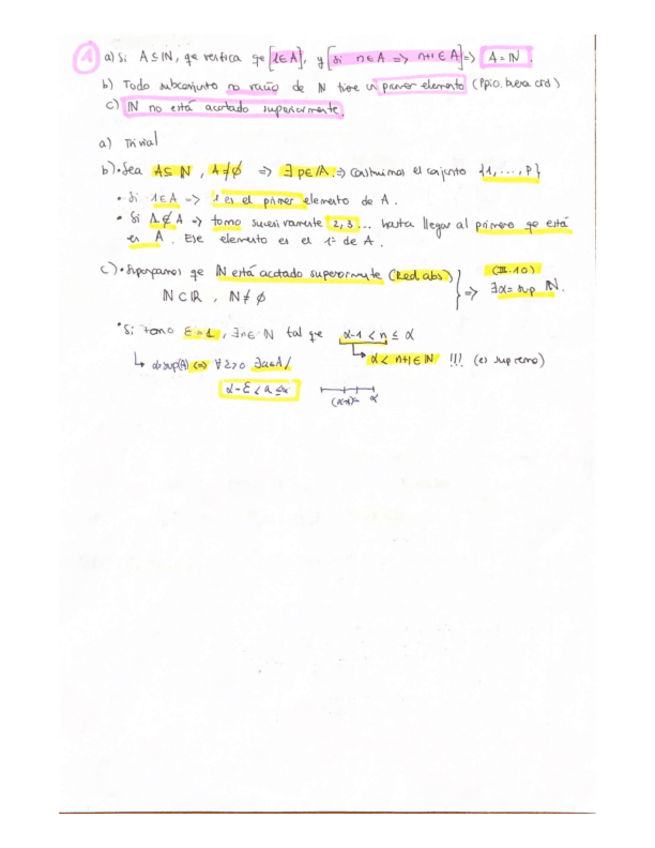 1 a) Si A ⊆ ℕ, qe verifica qe [1 ∈ A], y [si n ∈ A => n+1 ∈ A] => A = ℕ.
b) Todo subconjunto no vacío de ℕ tiene un primer elemento (Ppio. buena ord)
c) ℕ no está acotado superiormente.
a) Trivial
b) • Sea A ⊆ ℕ, A ≠ ∅ => ∃ p ∈ A. => Construimos el conjunto {1, ..., p}
• Si 1 ∈ A => 1 es el primer elemento de A.
• Si 1 ∉ A => tomo sucesivamente 2, 3 ... hasta llegar al primero qe está
en A. Ese elemento es el 1º de A.
c) • Supongamos qe ℕ está acotado superiormente (Red. abs) } => (III.10)
ℕ ⊂ ℝ, ℕ ≠ ∅ ∃α = sup ℕ.
• Si tomo ε = 1, ∃n ∈ ℕ tal que α-1 < n ≤ α
↳ α = sup(A) <=> ∀ε>0 ∃a∈A /
↳ α < n+1 ∈ ℕ !!! (es supremo)
α - ε < a ≤ α
α